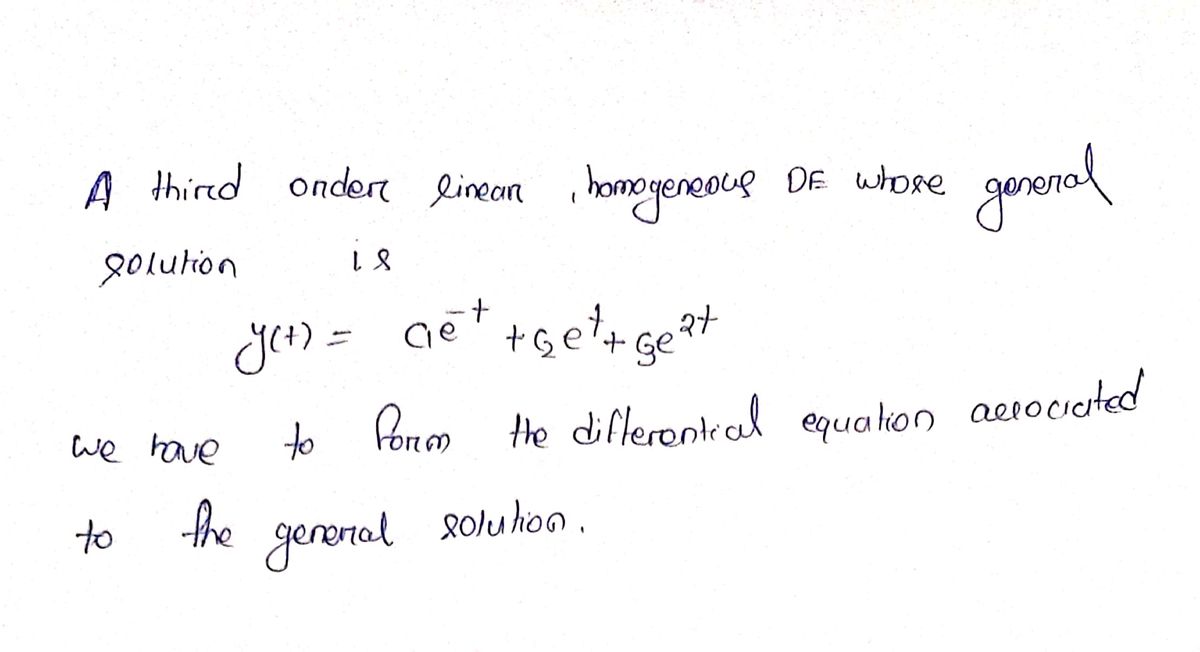 A third order linear, homogeneous DE whose general
solution is
y(t) = c₁e⁻ᵗ + c₂eᵗ + c₃e²ᵗ
we have to form the differential equation associated
to the general solution.